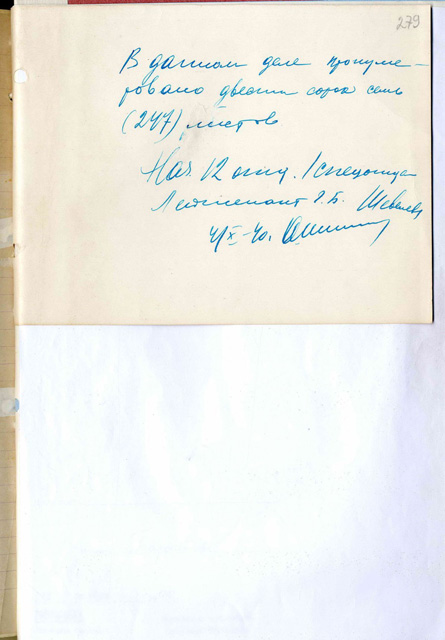 279
В данном деле пронуме-
ровано двести сорок семь
(247) листов
Нач 12 отд. 1 спецотдела
Лейтенант Г.Б. Шевелев
4/X-40.